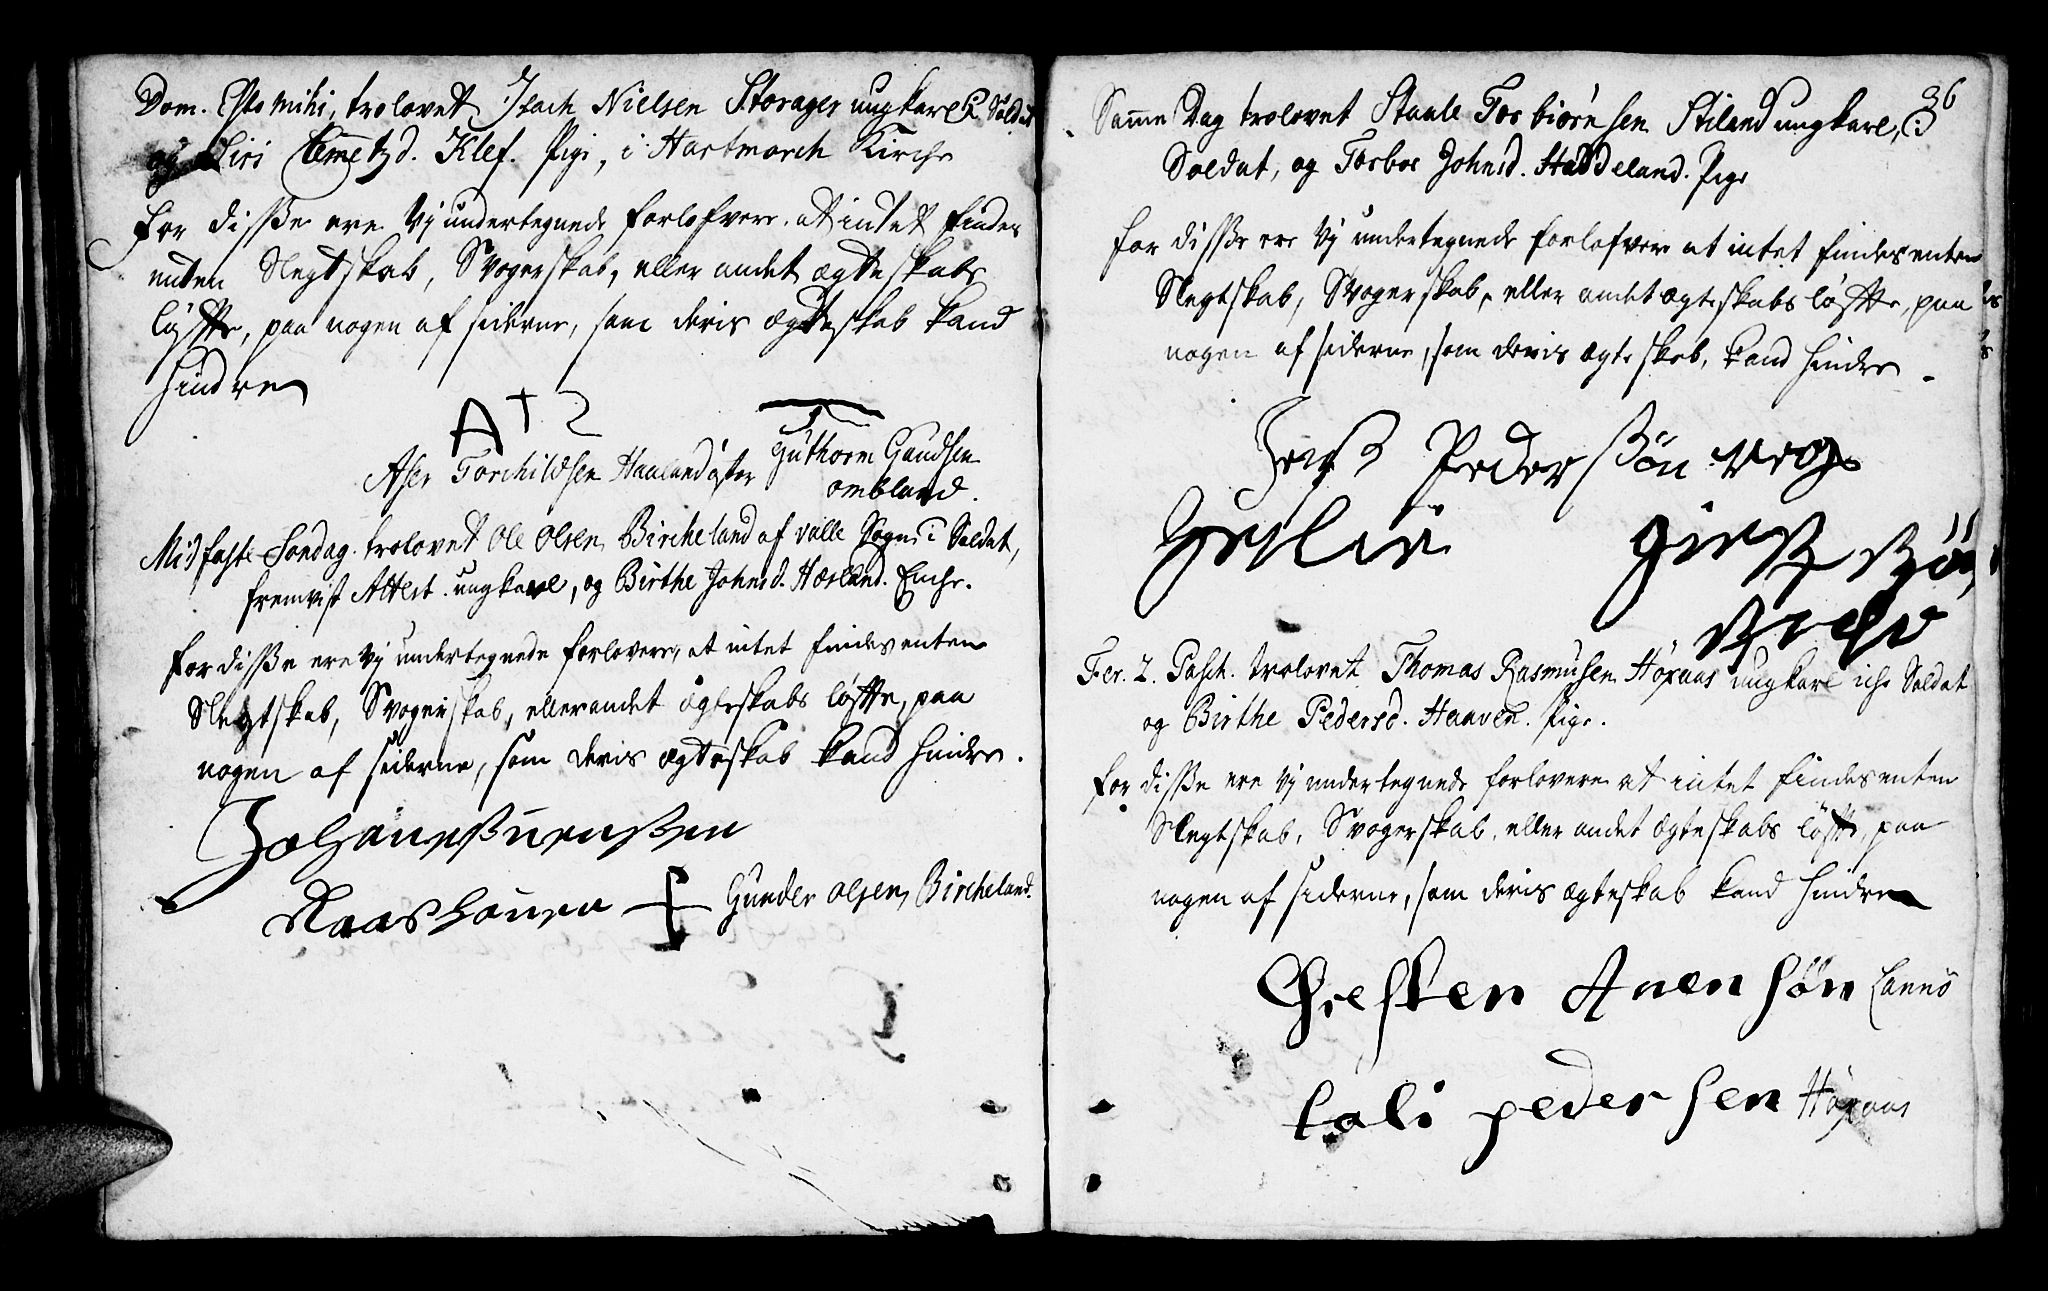 Dom. Esto mihi, trolovet Isach Nielsen Storager ungkarl, Soldat
og Siri Tdme Klef. Pige, i Hartmarch Kirche
for disse ere vj undertegnede forlofvere at intet findes
enten Slegtskab, Svogerskab, eller andet ægteskabs
løffte, paa nogen af siderne, som deris ægteskab kand
hindre
A T 2
Aser Torchildsen Haaland øster
Guthorm Gundsen
ombland.
Midfaste Søndag trolovet Ole Olsen Bircheland af valle Sogn i Soldat,
fremvist Attest. ungkarl, og Birthe Johnsd. Hærland. Enche.
for disse ere vj undertegnede forlovere, at intet findes enten
Slegtskab, Svogerskab, eller andet ægteskabs løffte, paa
nogen af siderne, som deris ægteskab kand hindre.
Gunder Olsen Bircheland.
36
Samme Dag trolovet Staale Torbiørnsen Stiland ungkarl,
Soldat, og Torbor Johnsd. Haddeland. Pige
for disse ere vj undertegnede forlofvere at intet findes enten
Slegtskab, Svogerskab, eller andet ægteskabs løffte, paa
nogen af siderne, som deris ægteskab, kand hindre.
Pedersøn
Fer. 2. Pasch. trolovet Thomas Rasmusen Høyaas ungkarl iche Soldat
og Birthe Pedersd. Haaven. Pige.
for disse ere vj undertegnede forlovere at intet findes enten
Slegtskab, Svogerskab, eller andet ægteskabs løffte, paa
nogen af siderne, som deris ægteskab kand hindre
Chresten Anensøn
tali pedersen Høyaas